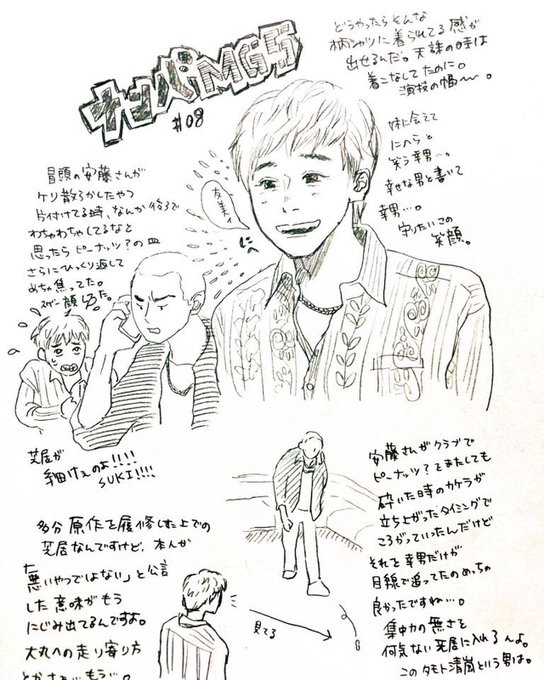 ナンバMG5
#08
どうやったらそんな
柄シャツに着られてる感が
出せるんだ。天誅の時は
着こなしてたのに。
演技の幅〜。
妹に会えて
にへらと
笑う幸男…。
幸せな男と書いて
幸男…。
守りたいこの
笑顔。
にへ
冒頭の安藤さんが
ケリ散らかしたやつ
片付けてる時、なんか後ろで
わちゃわちゃしてるなと
思ったらピーナッツ?の皿
さらにひっくり返して
めちゃ焦ってた。
芝居が
細けぇのよ!!!!
SUKI!!!!
多分原作を履修した上での
芝居なんですけど、本人が
「悪いやつではない」と公言
した意味がもう
にじみ出てるんですよ。
大丸への走り寄り方
とかさぁ…もう…。
見てる
安藤さんがクラブで
ピーナッツ?をまたしても
砕いた時のカケラが
立ち上がったタイミングで
ころがっていったんだけど
それを幸男だけが
目線で追ってたのめっちゃ
良かったですね…。
集中力の無さを
何気ない芝居に入れるんよ。
このタモト清嵐という男は。